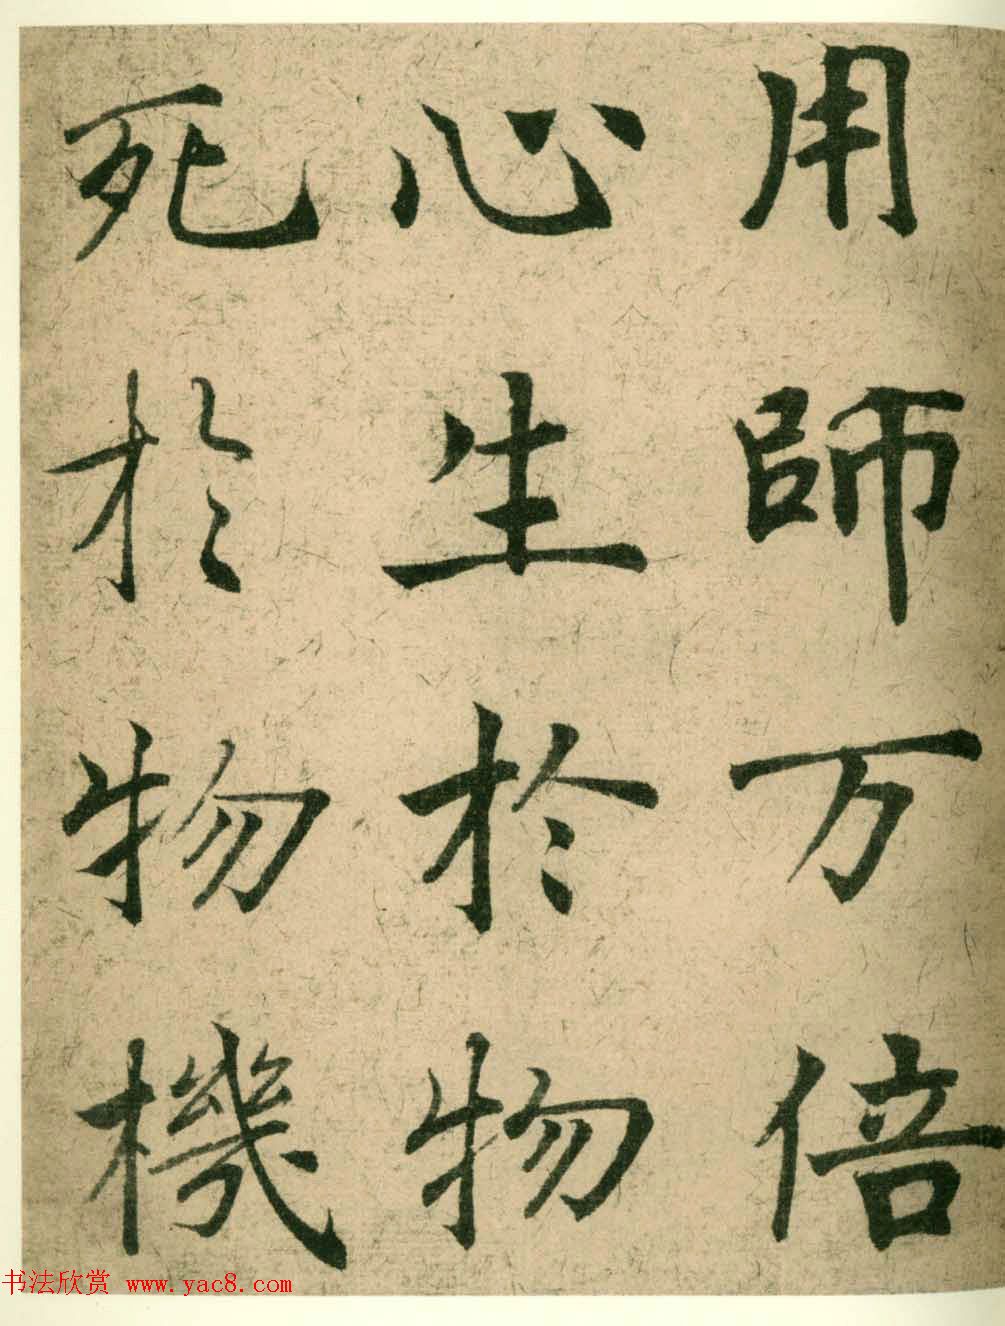 用師万倍
心生於物
死於物機
书法欣赏 www.yac8.com